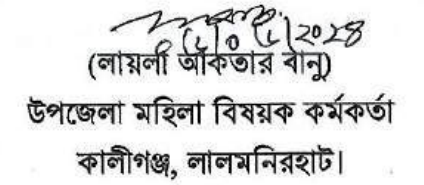 (লায়লী আকতার বানু)
উপজেলা মহিলা বিষয়ক কর্মকর্তা
কালীগঞ্জ, লালমনিরহাট।